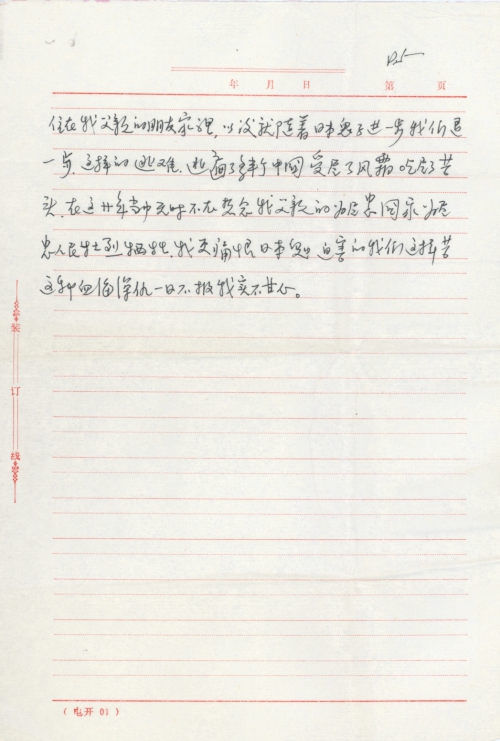 年 月 日 第 页
住在我父亲的朋友家里，以后就随着日本鬼子进一步我们退
一步，这样的逃难，逃遍了整个中国受尽了风霜吃尽了苦
头，在这廿年当中无时不在想念我父亲的为尽忠国家为尽
忠人民壮烈牺牲，我更痛恨日本鬼 迫害的我们这样苦
这种血海深仇一日不报我实不甘心。
装订线
（电开 01）